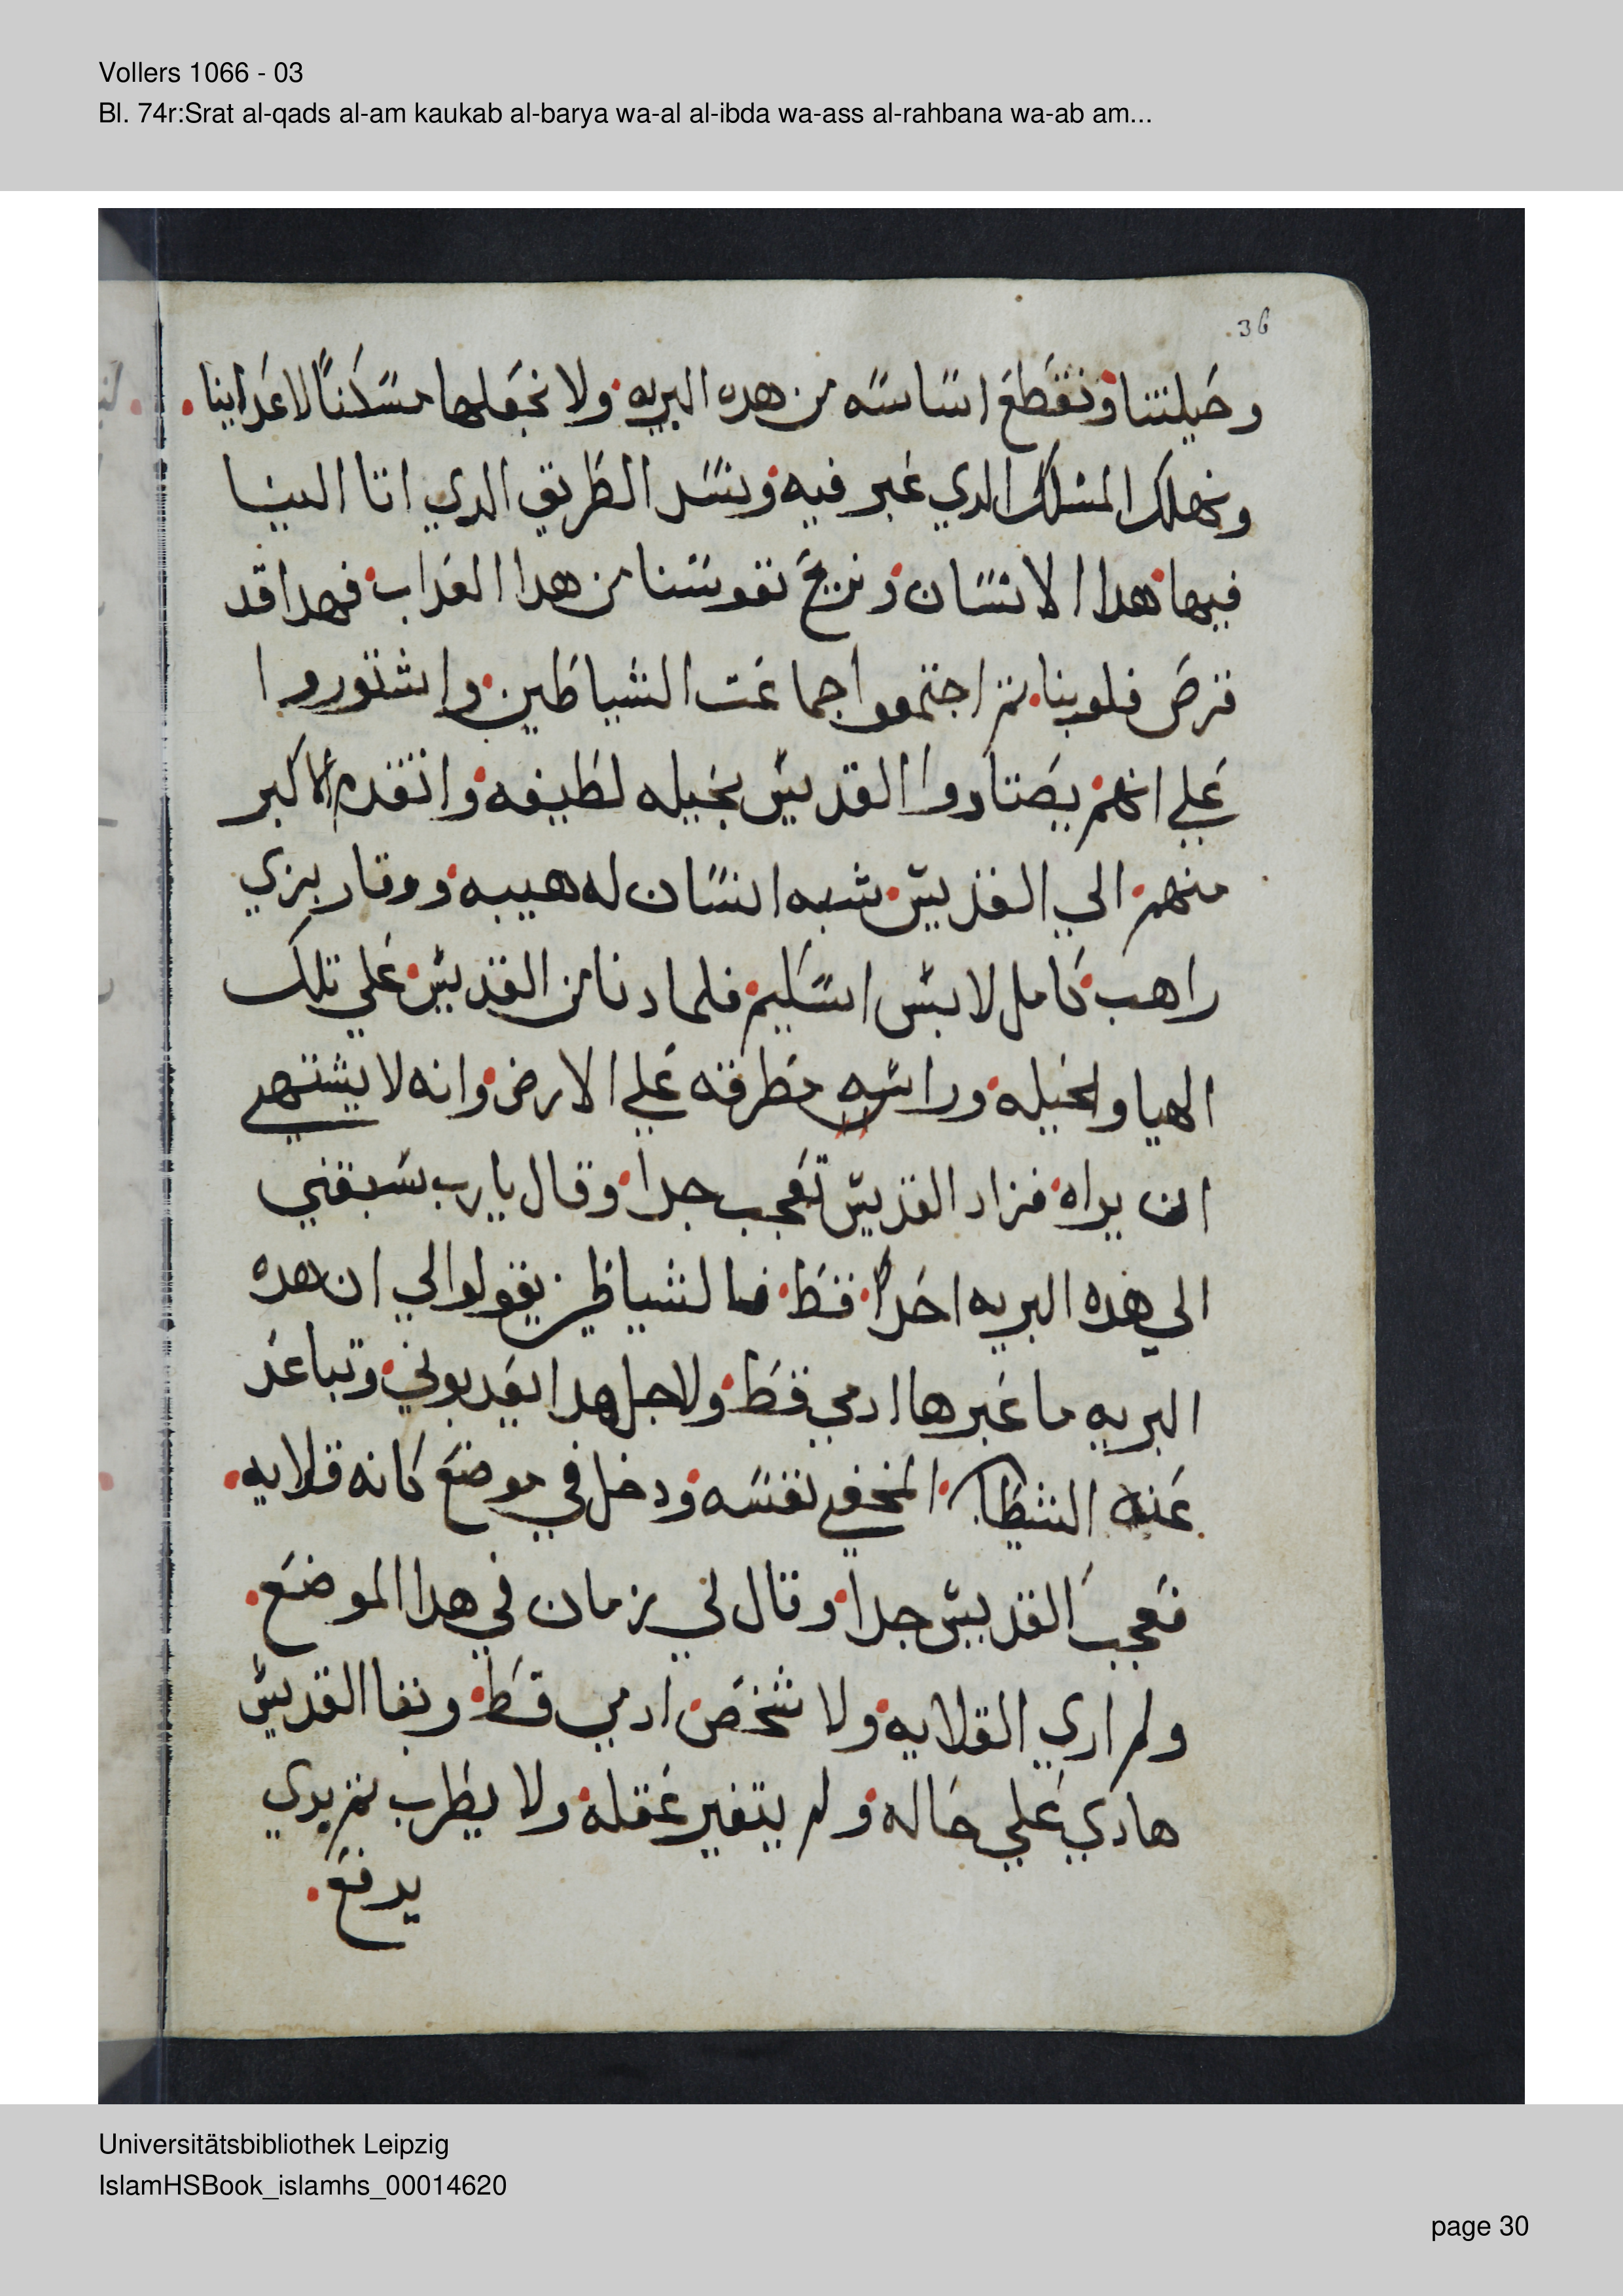 Vollers 1066 - 03
Bl. 74r:Srat al-qads al-am kaukab al-barya wa-al al-ibda wa-ass al-rahbana wa-ab am...
36
وحيلتنا ونقطع اساسه من هده البريه ولا نجعلها مسكنًا لاعداينا
ونهلك المسلك الدي عبر فيه ونسد الطريق الدي اتا الينا
فيها هدا الانسان ونريح نفوسنا من هدا العداب فهدا قد
قرض قلوبنا تم اجتمعوا جماعت الشياطين واشتوروا
علي انهم يصتادوا القديس بحيله لطيفه واتقدم الاكبر
منهم الي القديس شبه انسان له هيبه ووقار بزي
راهب كامل لابس اسكيم فلما دنا من القديس علي تلك
الهيا والحيله وراسه مطرقه علي الارض وانه لا يشتهي
ان يراه فزاد القديس تعجب جدا وقال يارب سبقني
الي هده البريه احدًا قط فالشياطين يقولوا لي ان هده
البريه ما عبرها ادمي قط ولاجل هدا يعدبوني وتباعد
عنه الشيطان المخفي نفسه ودخل في موضع كانه قلايه
فعجب القديس جدًا وقال لي زمان في هدا الموضع
ولم اري القلايه ولا شخص ادمي قط وبقا القديس
هادي علي حاله ولم يتغير عقله ولا يطرب تم بدي
يدفع
Universitätsbibliothek Leipzig
IslamHSBook_islamhs_00014620
page 30